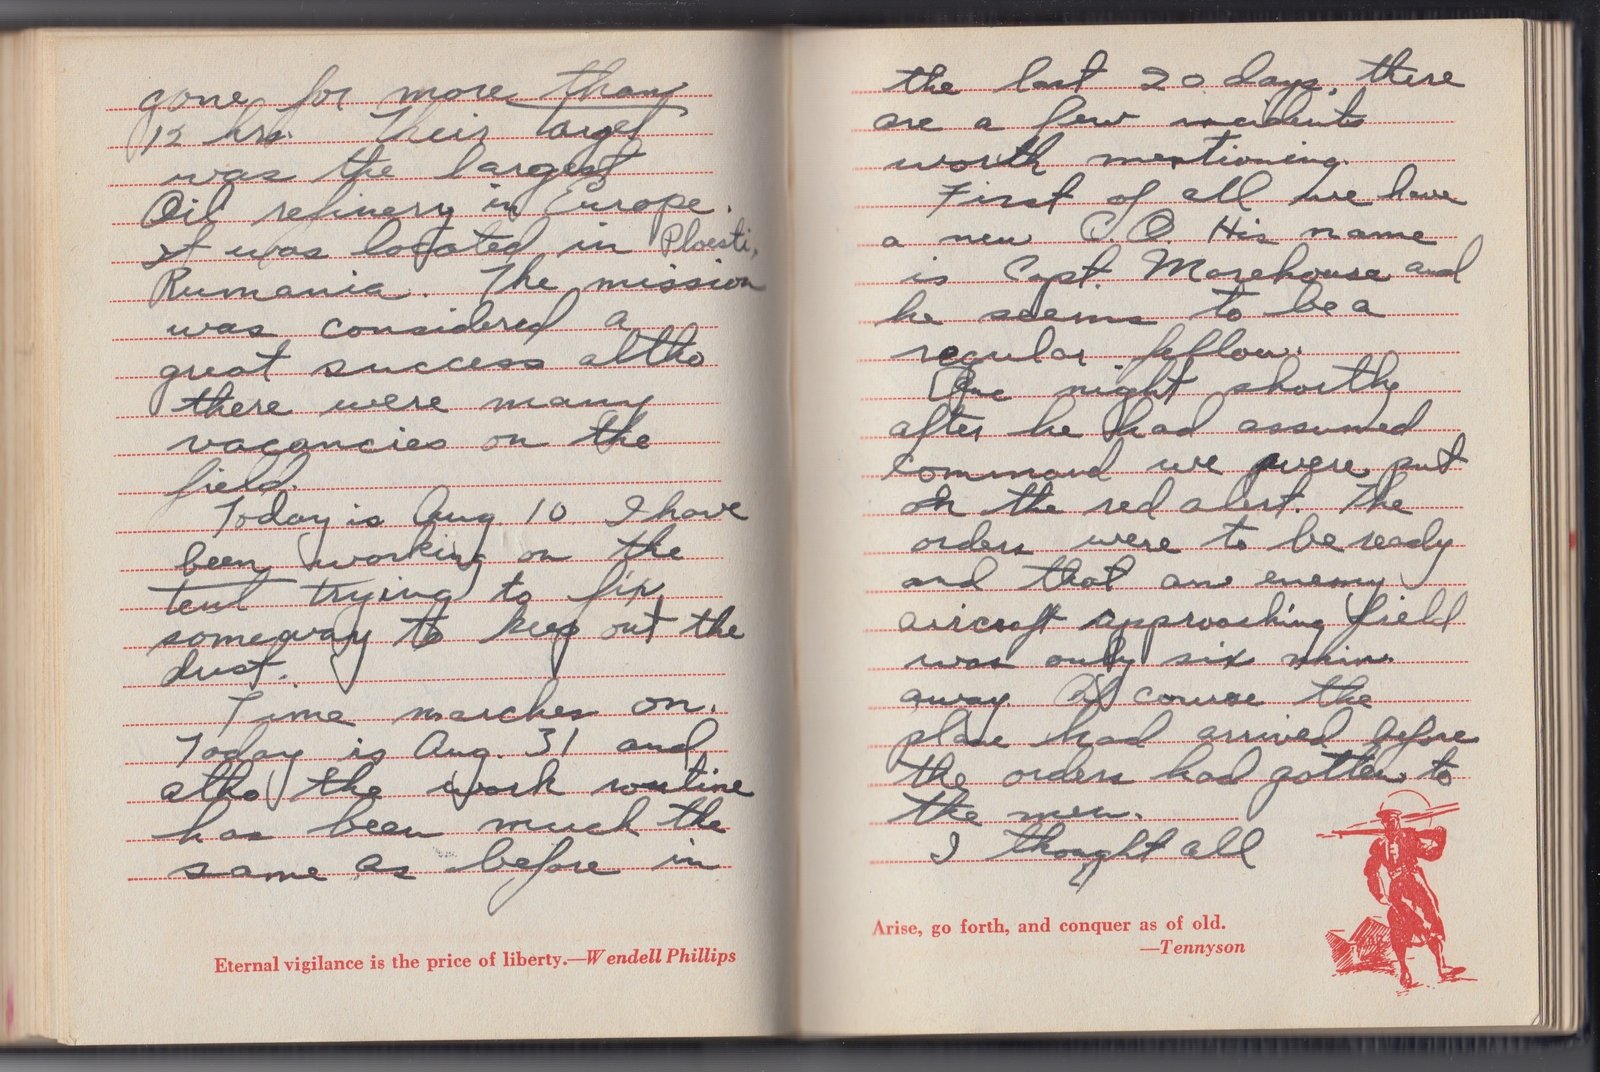 gone for more than
12 hrs. Their target
was the largest
Oil refinery in Europe.
It was located in Ploesti,
Rumania. The mission
was considered a
great success altho
there were many
vacancies on the
field.
Today is Aug 10 I have
been working on the
tent trying to fix
someway to keep out the
dust.
Time marches on.
Today is Aug. 31 and
altho the work routine
has been much the
same as before in
Eternal vigilance is the price of liberty.—Wendell Phillips
the last 20 days, there
are a few incidents
worth mentioning.
First of all we have
a new C.O. His name
is Capt. Morehouse and
he seems to be a
regular fellow.
One night shortly
after he had assumed
command we were put
on the red alert. The
orders were to be ready
and that an enemy
aircraft approaching field
was only six min.
away. Of course the
plane had arrived before
the orders had gotten to
the men.
I thought all
Arise, go forth, and conquer as of old.
—Tennyson